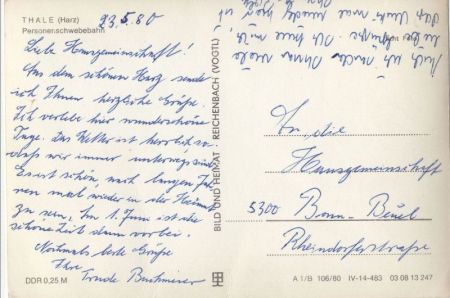 THALE (Harz)
Personenschwebebahn
23.5.80
Liebe Hausgemeinschaft!
Aus dem schönen Harz sende
ich Ihnen herzliche Grüße.
Ich verlebe hier wunderschöne
Tage. Das Wetter ist herrlich, so
daß wir immer unterwegs sind.
Es ist schön, nach langen Jah-
ren mal wieder in der Heimat
zu sein. Am 1. Juni ist die
schöne Zeit dann vorbei.
Nochmals liebe Grüße
Ihre
Trude
DDR 0,25 M
BILD UND HEIMAT REICHENBACH (VOGTL)
Auch ich sende Ihnen viele
liebe Grüße. Ich freue mich,
An die
Hausgemeinschaft
5300 Bonn-Beuel
Rheindorferstraße
A 1/B 106/80 IV-14-483 03 08 13 247